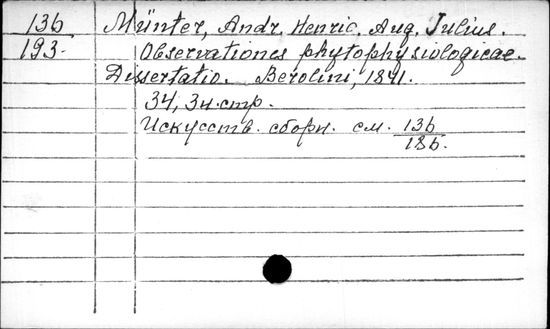 136 Münter, Andr. Henric. Aug. Julius.
193. Observationes phytophysiologicae.
Dissertatio. Berolini, 1841.
34, 3н. стр.
Искусств. сборн. см. 136
186.